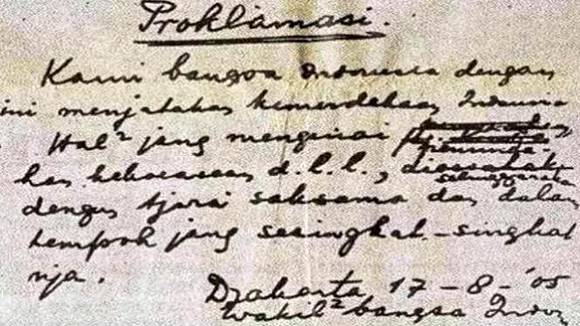 Proklamasi.
Kami bangsa Indonesia dengan
ini menjatakan kemerdekaan Indonesia
Hal² jang mengenai pemindah
han kekoeasaan d.l.l.,
dengan tjara saksama dan dalam
tempoh jang sesingkat-singkat
nja.
Djakarta 17 - 8 - '05
Wakil² bangsa Indon